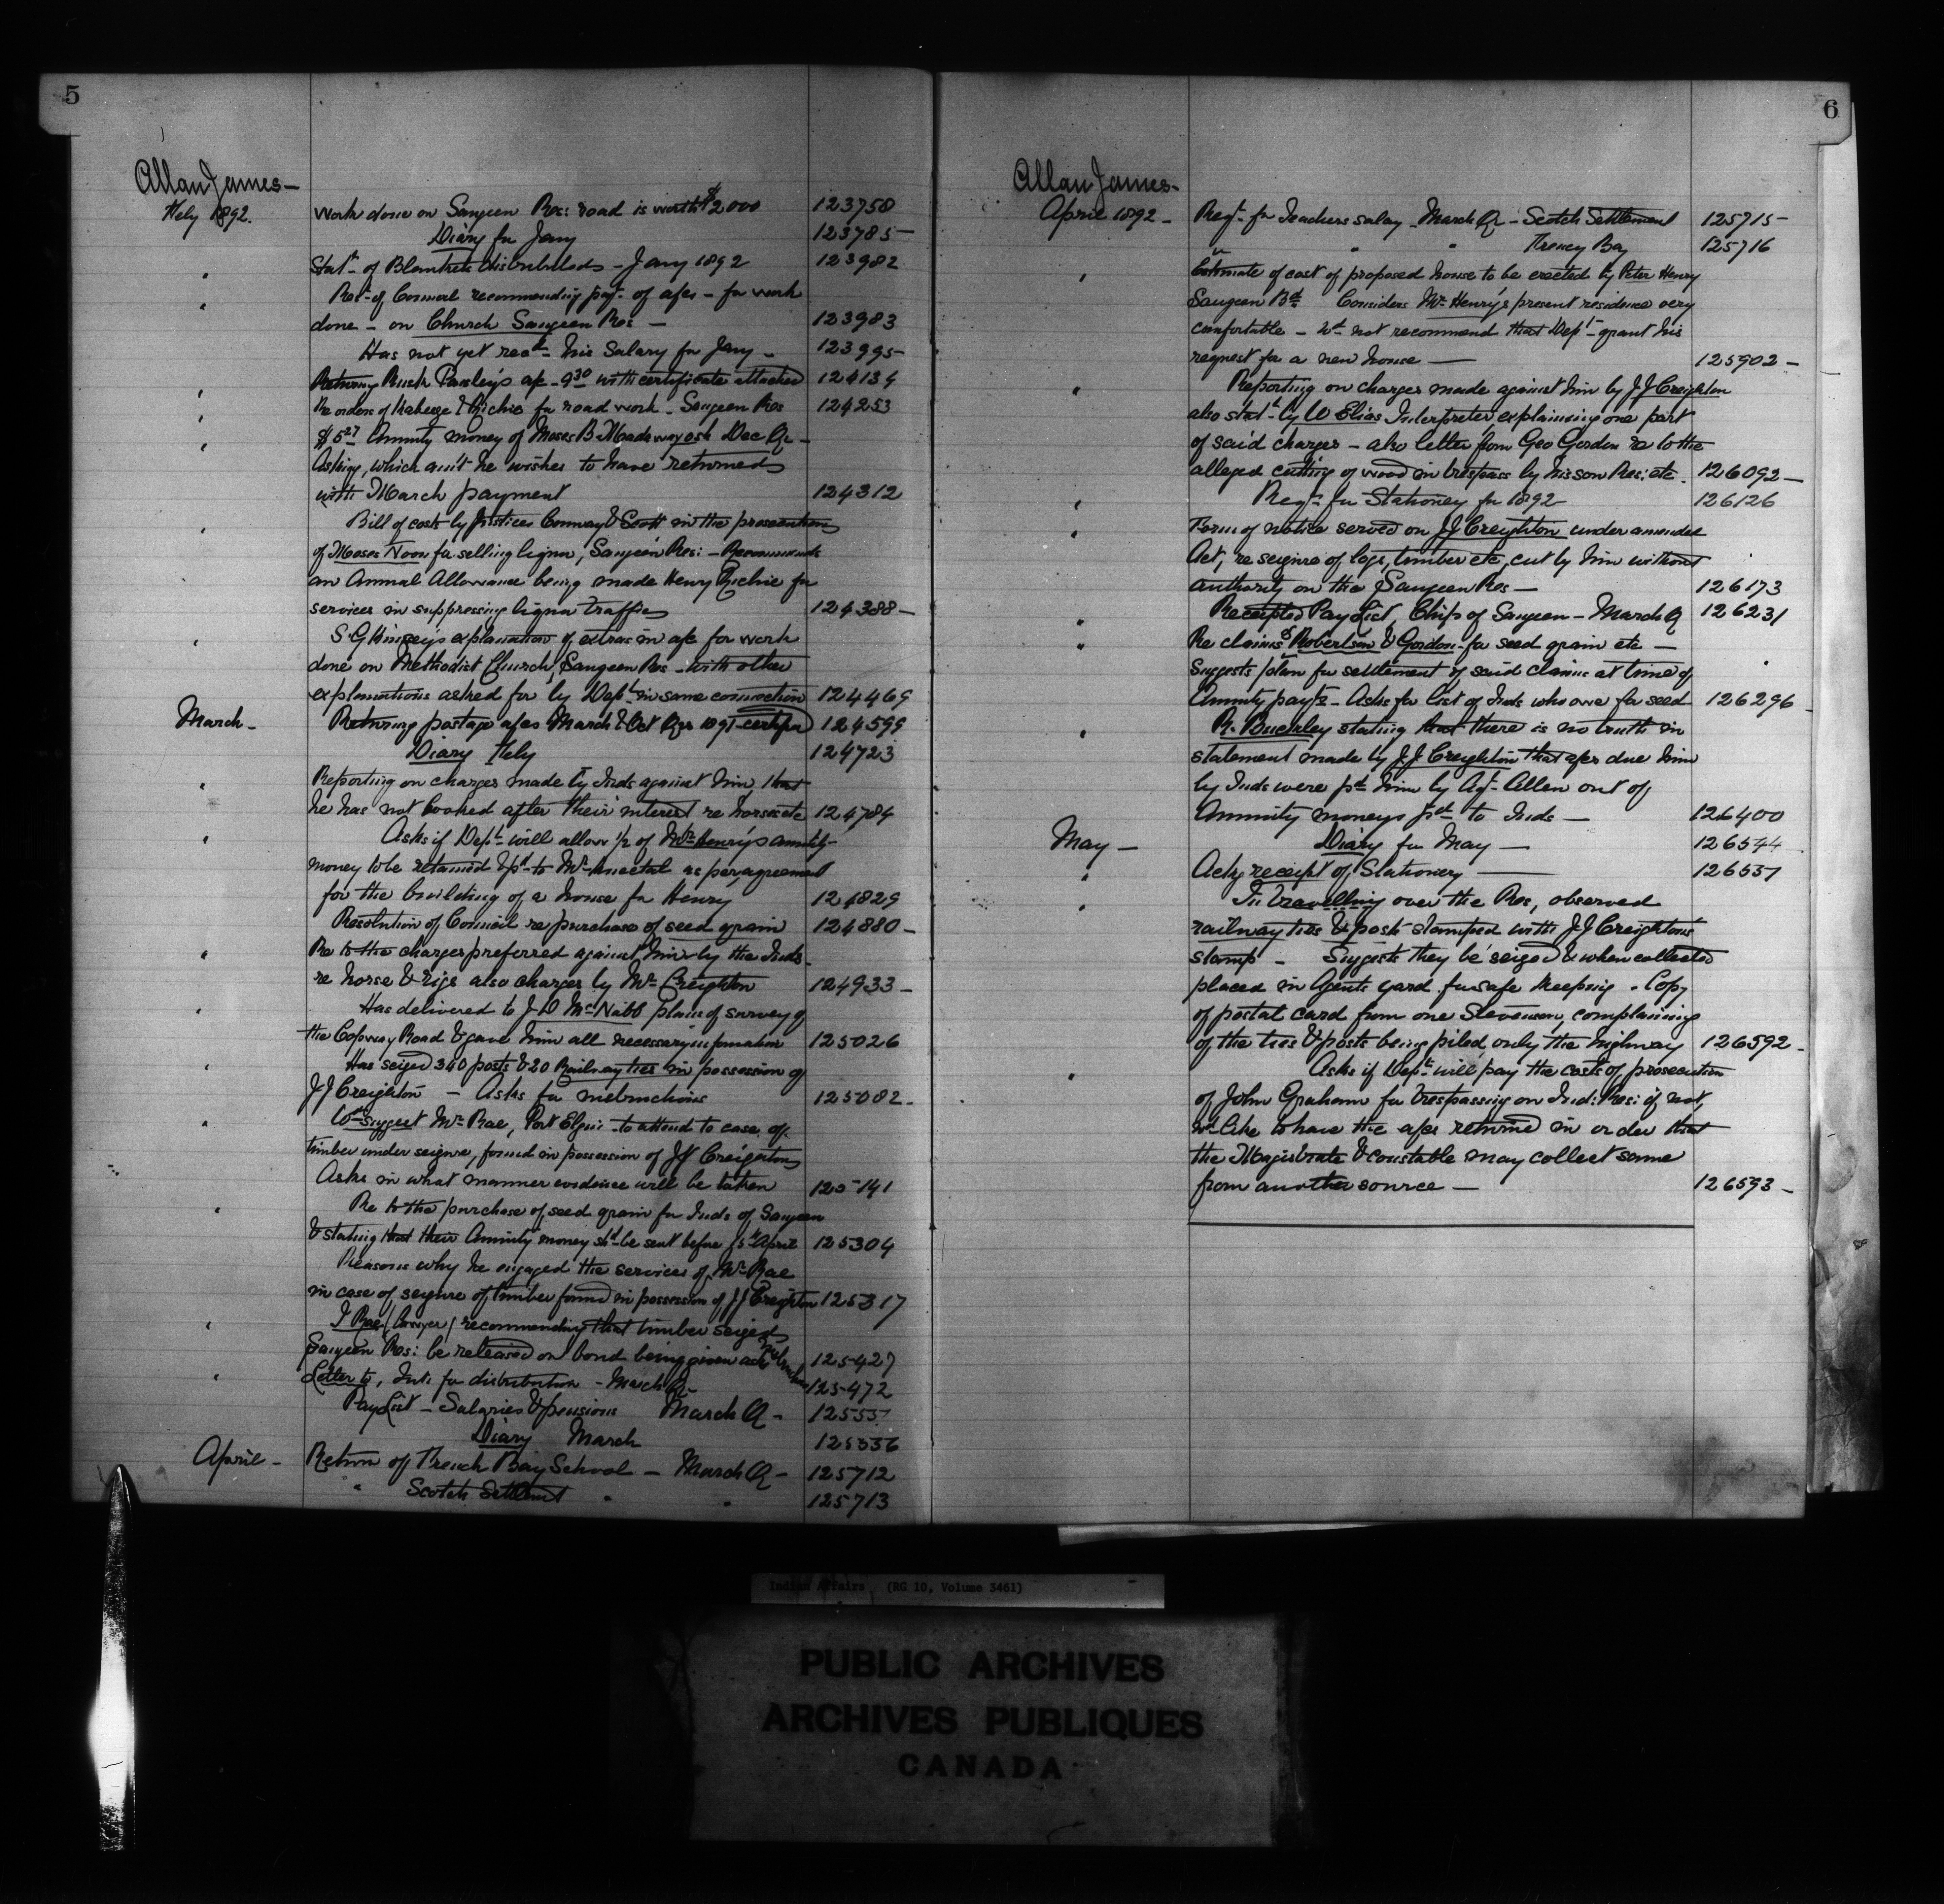 5
Allan James—
Feby 1892.
Work done on Saugeen Res: road is worth $2000 123758
Diary for Jany 123785
Stat. of Blankets distributed – Jany 1892 123982
Res. of Council recommending payt. of a/cs – for work
done – on Church Saugeen Res – 123983
Has not yet recd. his Salary for Jany – 123995
Returning Rush a/c 9 30 with certificate attached 124134
Re orders of Kabeege & Richie for road work – Saugeen Res 124253
$5 27 Annuity money of Moses B. Madwayosh Dec Qr –
Asking, which am't he wishes to have returned
with March payment 124312
Bill of costs by Justices Conway & Scott in the prosecution
of Moses Noon for selling liquor, Saugeen Res: – Recommends
an Annual Allowance being made Henry Richie for
services in suppressing liquor traffic 124388 –
explanation of extras in a/c for work
done on Methodist Church, Saugeen Res – with other
explanations asked for by Dept. in same connection 124469
March – Returning postage a/cs March & Oct Qrs 1891 124599
Diary Feby 124723
Reporting on charges made by Inds against him, that
he has not looked after their interest re horses etc 124784
Asks if Dept. will allow ½ of Mr. Henry's annuity
money to be retained & pd. to Mr. as per agreement
for the building of a house for Henry 124829
Resolution of Council re purchase of seed grain 124880 –
Re to the charges preferred against him by the Inds –
re horse & rigs also charges by Mr. Creighton 124933 –
Has delivered to J D McNabb plans of survey of
the Copway Road & gave him all necessary information 125026
Has seized 340 posts & 20 Railway ties in possession of
J J Creighton – Asks for instructions 125082 –
Wd. suggest Mr. Rae, Port Elgin to attend to case of
timber under seizure, found in possession of J J Creighton
Asks in what manner evidence will be taken 125141
Re to the purchase of seed grain for Inds of Saugeen
& stating that their Annuity money shd. be sent before 15th April 125304
Reasons why he engaged the services of Mr. Rae
in case of seizure of timber found in possession of J J Creighton 125317
Rae (lawyer) recommending that timber seized
Saugeen Res: be released on bond being given 125427
Letter to, Ints for distribution – March Qr 125472
Pay List – Salaries & pensions March Q – 125555
Diary March 125556
April – Return of French Bay School – March Q – 125712
" Scotch Settlemt " " 125713
6
Allan James –
April 1892 –
Reqt. for Teachers salary – March Qr – Scotch Settlement 125715
" " " French Bay 125716
Estimate of cost of proposed house to be erected by Peter Henry
Saugeen Bd. Considers Mr. Henry's present residence very
comfortable – Wd. not recommend that Dept. grant his
request for a new house — 125902 –
Reporting on charges made against him by J J Creighton
also statt. by W Elias, Interpreter, explaining one part
of said charges – also letter from Geo Gordon re to the
alleged cutting of wood in trespass by his son Res: etc. 126092 –
Reqt. for Stationery for 1892 126126
Form of notice served on J J Creighton under amended
Act, re seizure of logs, timber etc, cut by him without
authority on the Saugeen Res – 126173
Receipted Pay List, Chifs of Saugeen – March Q 126231
Re claims of Robertson & Gordon for seed grain etc –
Suggests plan for settlement of said claims at time of
Annuity payts – Asks for list of Inds who owe for seed 126296 –
R. Buckley stating that there is no truth in
statement made by J J Creighton that a/cs due him
by Inds were pd. him by Agt. Allen out of
Annuity moneys pd. to Inds – 126400
May – Diary for May – 126544
Ackg receipt of Stationery — 126551
In travelling over the Res, observed
railway ties & posts stamped with J J Creightons
stamp – Suggests they be seized & when collected
placed in Agents yard for safe keeping – Copy
of postal card from one Stevenson, complaining
of the ties & posts being piled only the highway 126592 –
Asks if Dept. will pay the costs of prosecution
of John Graham for trespassing on Ind: Res: if not,
wd. like to have the a/cs returned in order that
the Magistrate & Constable may collect same
from another source — 126593 –
Indian Affairs (RG 10, Volume 3461)
PUBLIC ARCHIVES
ARCHIVES PUBLIQUES
CANADA